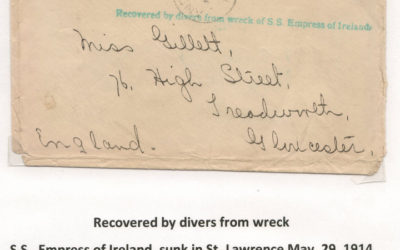 Recovered by divers from wreck of S.S. Empress of Ireland
Miss Gillett,
76. High Street,
Treadworth,
Gloucester,
England.
Recovered by divers from wreck
S.S. Empress of Ireland, sunk in St. Lawrence May, 29, 1914